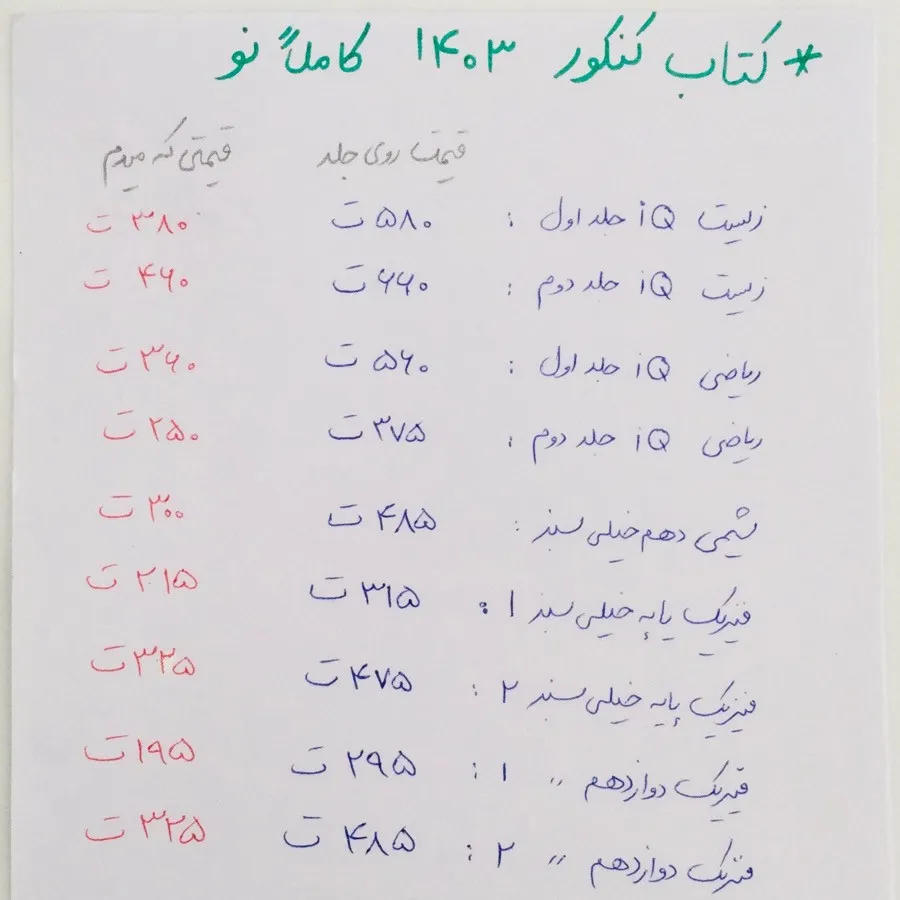 * کتاب کنکور ۱۴۰۳ کاملاً نو
قیمت روی جلد قیمتی که میدم
زیست iQ جلد اول : ۵۸۰ ت ۳۸۰ ت
زیست iQ جلد دوم : ۶۶۰ ت ۴۶۰ ت
ریاضی iQ جلد اول : ۵۶۰ ت ۳۶۰ ت
ریاضی iQ جلد دوم : ۳۷۵ ت ۲۵۰ ت
شیمی دهم خیلی سبز : ۴۸۵ ت ۳۰۰ ت
فیزیک پایه خیلی سبز ۱ : ۳۱۵ ت ۲۱۵ ت
فیزیک پایه خیلی سبز ۲ : ۴۷۵ ت ۳۲۵ ت
فیزیک دوازدهم 〃 ۱ : ۲۹۵ ت ۱۹۵ ت
فیزیک دوازدهم 〃 ۲ : ۴۸۵ ت ۳۲۵ ت